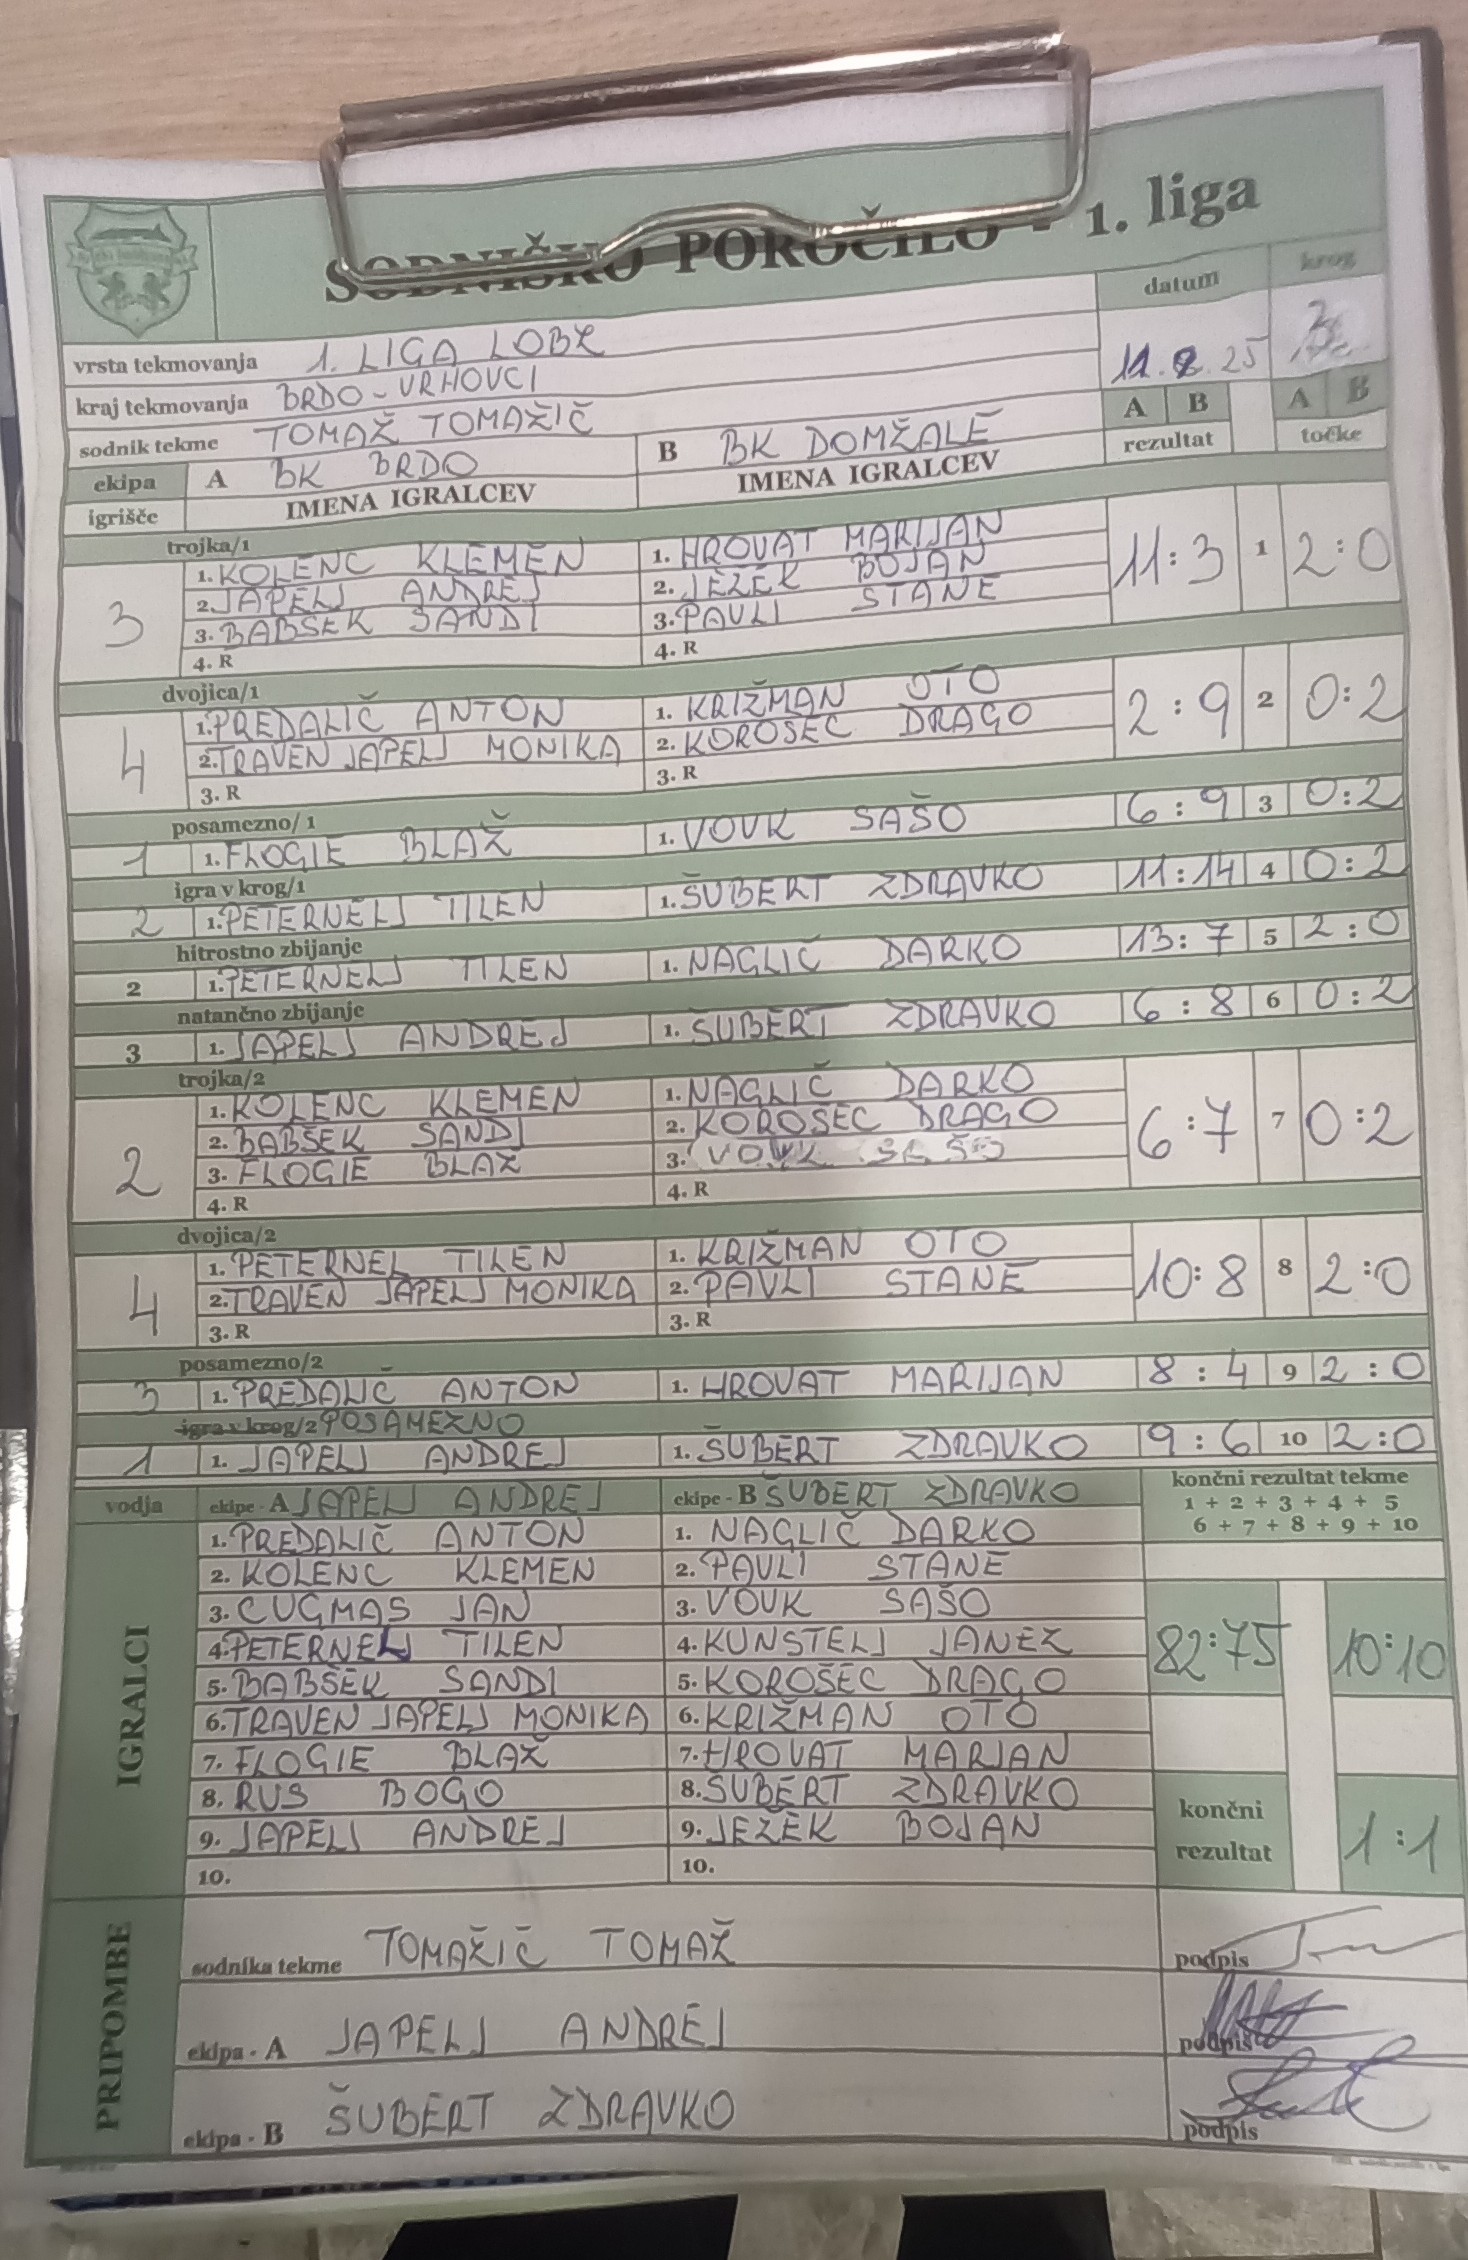 SODNIŠKO POROČILO - 1. liga
datum krog
vrsta tekmovanja 1. LIGA LOBZ
11. 25
kraj tekmovanja BRDO-VRHOVCI
sodnik tekme TOMAŽ TOMAŽIČ
A B A B
ekipa A BK BRDO B BK DOMŽALE rezultat točke
igrišče IMENA IGRALCEV IMENA IGRALCEV
trojka/1
3 11:3 1 2:0
1. KOLENC KLEMEN 1. HROVAT MARIJAN
2. JAPELJ ANDREJ 2. JEŽEK BOJAN
3. BABŠEK SANDI 3. PAVLI STANE
4. R 4. R
dvojica/1
4 2:9 2 0:2
1. PREDALIČ ANTON 1. KRIŽMAN OTO
2. TRAVEN JAPELJ MONIKA 2. KOROŠEC DRAGO
3. R 3. R
posamezno/1
1 1. FLOGIE BLAŽ 1. VOVK SAŠO 6:9 3 0:2
igra v krog/1
2 1. PETERNELJ TILEN 1. ŠUBERT ZDRAVKO 11:14 4 0:2
hitrostno zbijanje
2 1. PETERNELJ TILEN 1. NAGLIČ DARKO 13:7 5 2:0
natančno zbijanje
3 1. JAPELJ ANDREJ 1. ŠUBERT ZDRAVKO 6:8 6 0:2
trojka/2
2 6:7 7 0:2
1. KOLENC KLEMEN 1. NAGLIČ DARKO
2. BABŠEK SANDI 2. KOROŠEC DRAGO
3. FLOGIE BLAŽ 3. VOVK SAŠO
4. R 4. R
dvojica/2
4 10:8 8 2:0
1. PETERNEL TILEN 1. KRIŽMAN OTO
2. TRAVEN JAPELJ MONIKA 2. PAVLI STANE
3. R 3. R
posamezno/2
3 1. PREDALIČ ANTON 1. HROVAT MARIJAN 8:4 9 2:0
igra v krog/2 POSAMEZNO
1 1. JAPELJ ANDREJ 1. ŠUBERT ZDRAVKO 9:6 10 2:0
vodja ekipe - A JAPELJ ANDREJ ekipe - B ŠUBERT ZDRAVKO
končni rezultat tekme
1 + 2 + 3 + 4 + 5
6 + 7 + 8 + 9 + 10
IGRALCI
1. PREDALIČ ANTON 1. NAGLIČ DARKO
2. KOLENC KLEMEN 2. PAVLI STANE
3. CUGMAS JAN 3. VOVK SAŠO
4. PETERNELJ TILEN 4. KUNSTELJ JANEZ
82:75 10:10
5. BABŠEK SANDI 5. KOROŠEC DRAGO
6. TRAVEN JAPELJ MONIKA 6. KRIŽMAN OTO
7. FLOGIE BLAŽ 7. HROVAT MARJAN
8. RUS BOGO 8. ŠUBERT ZDRAVKO
9. JAPELJ ANDREJ 9. JEŽEK BOJAN
10. 10.
končni rezultat 1:1
PRIPOMBE
sodnika tekme TOMAŽIČ TOMAŽ podpis
ekipa - A JAPELJ ANDREJ podpis
ekipa - B ŠUBERT ZDRAVKO podpis